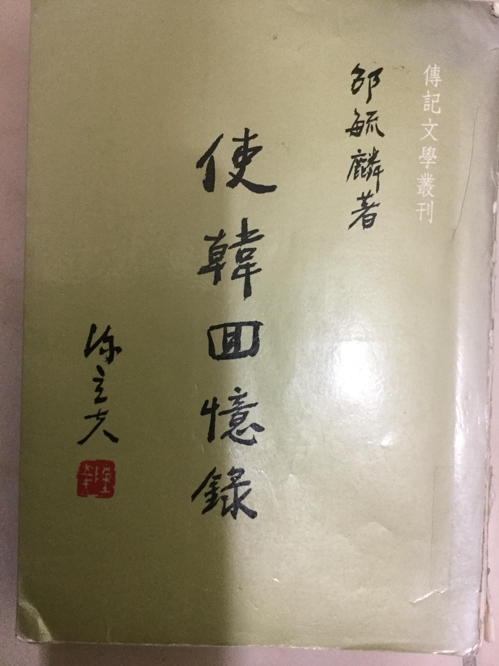 傳記文學叢刊
邵毓麟著
使韓回憶錄
陳立夫